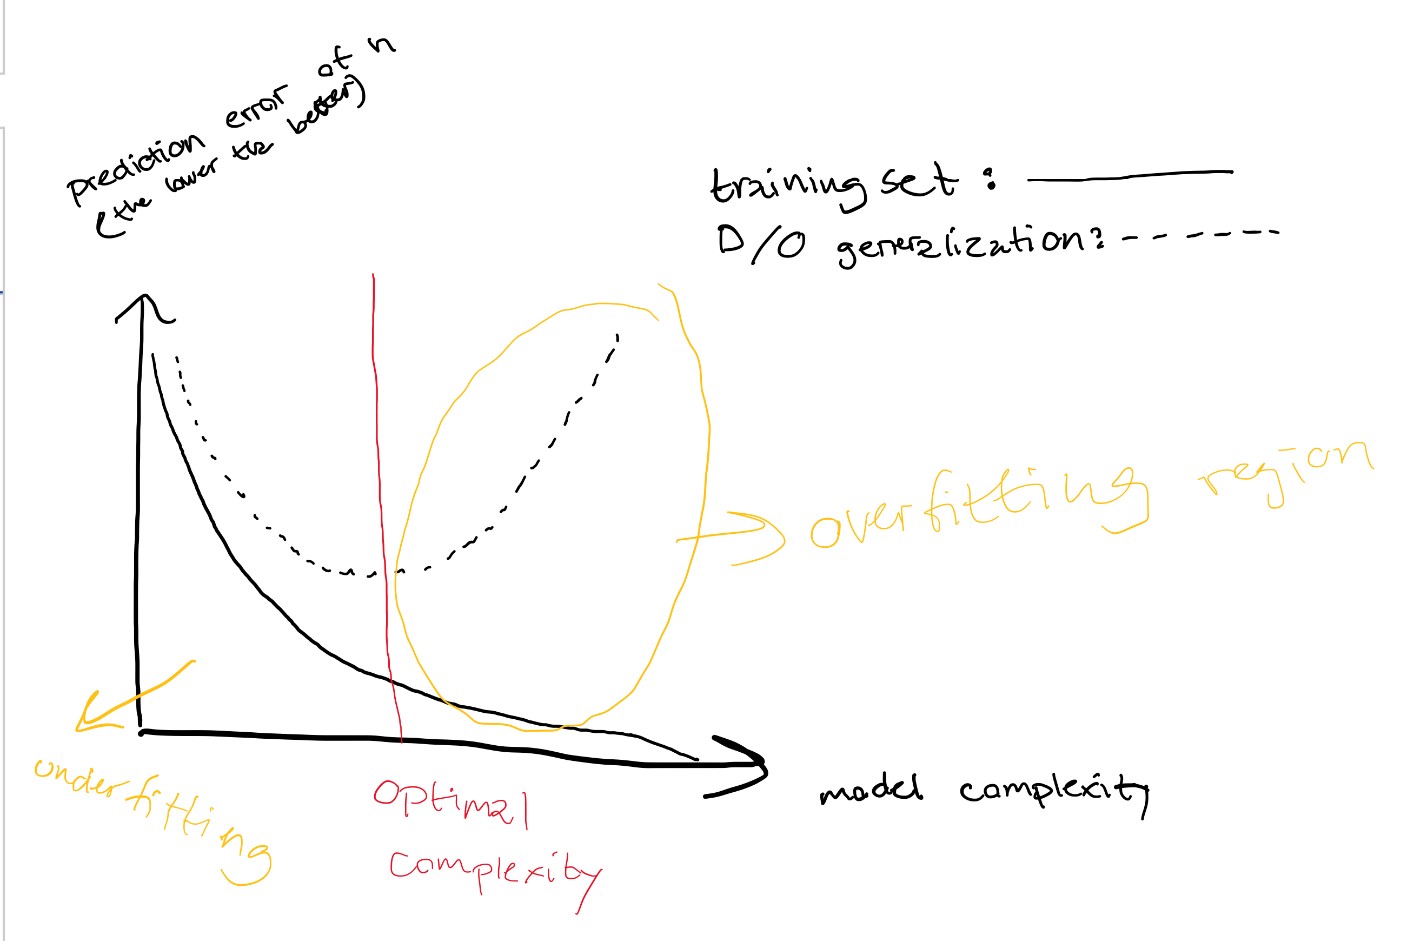 prediction error of n
(the lower the better)
training set :
D/O generalization:
overfitting region
underfitting
optimal
complexity
model complexity